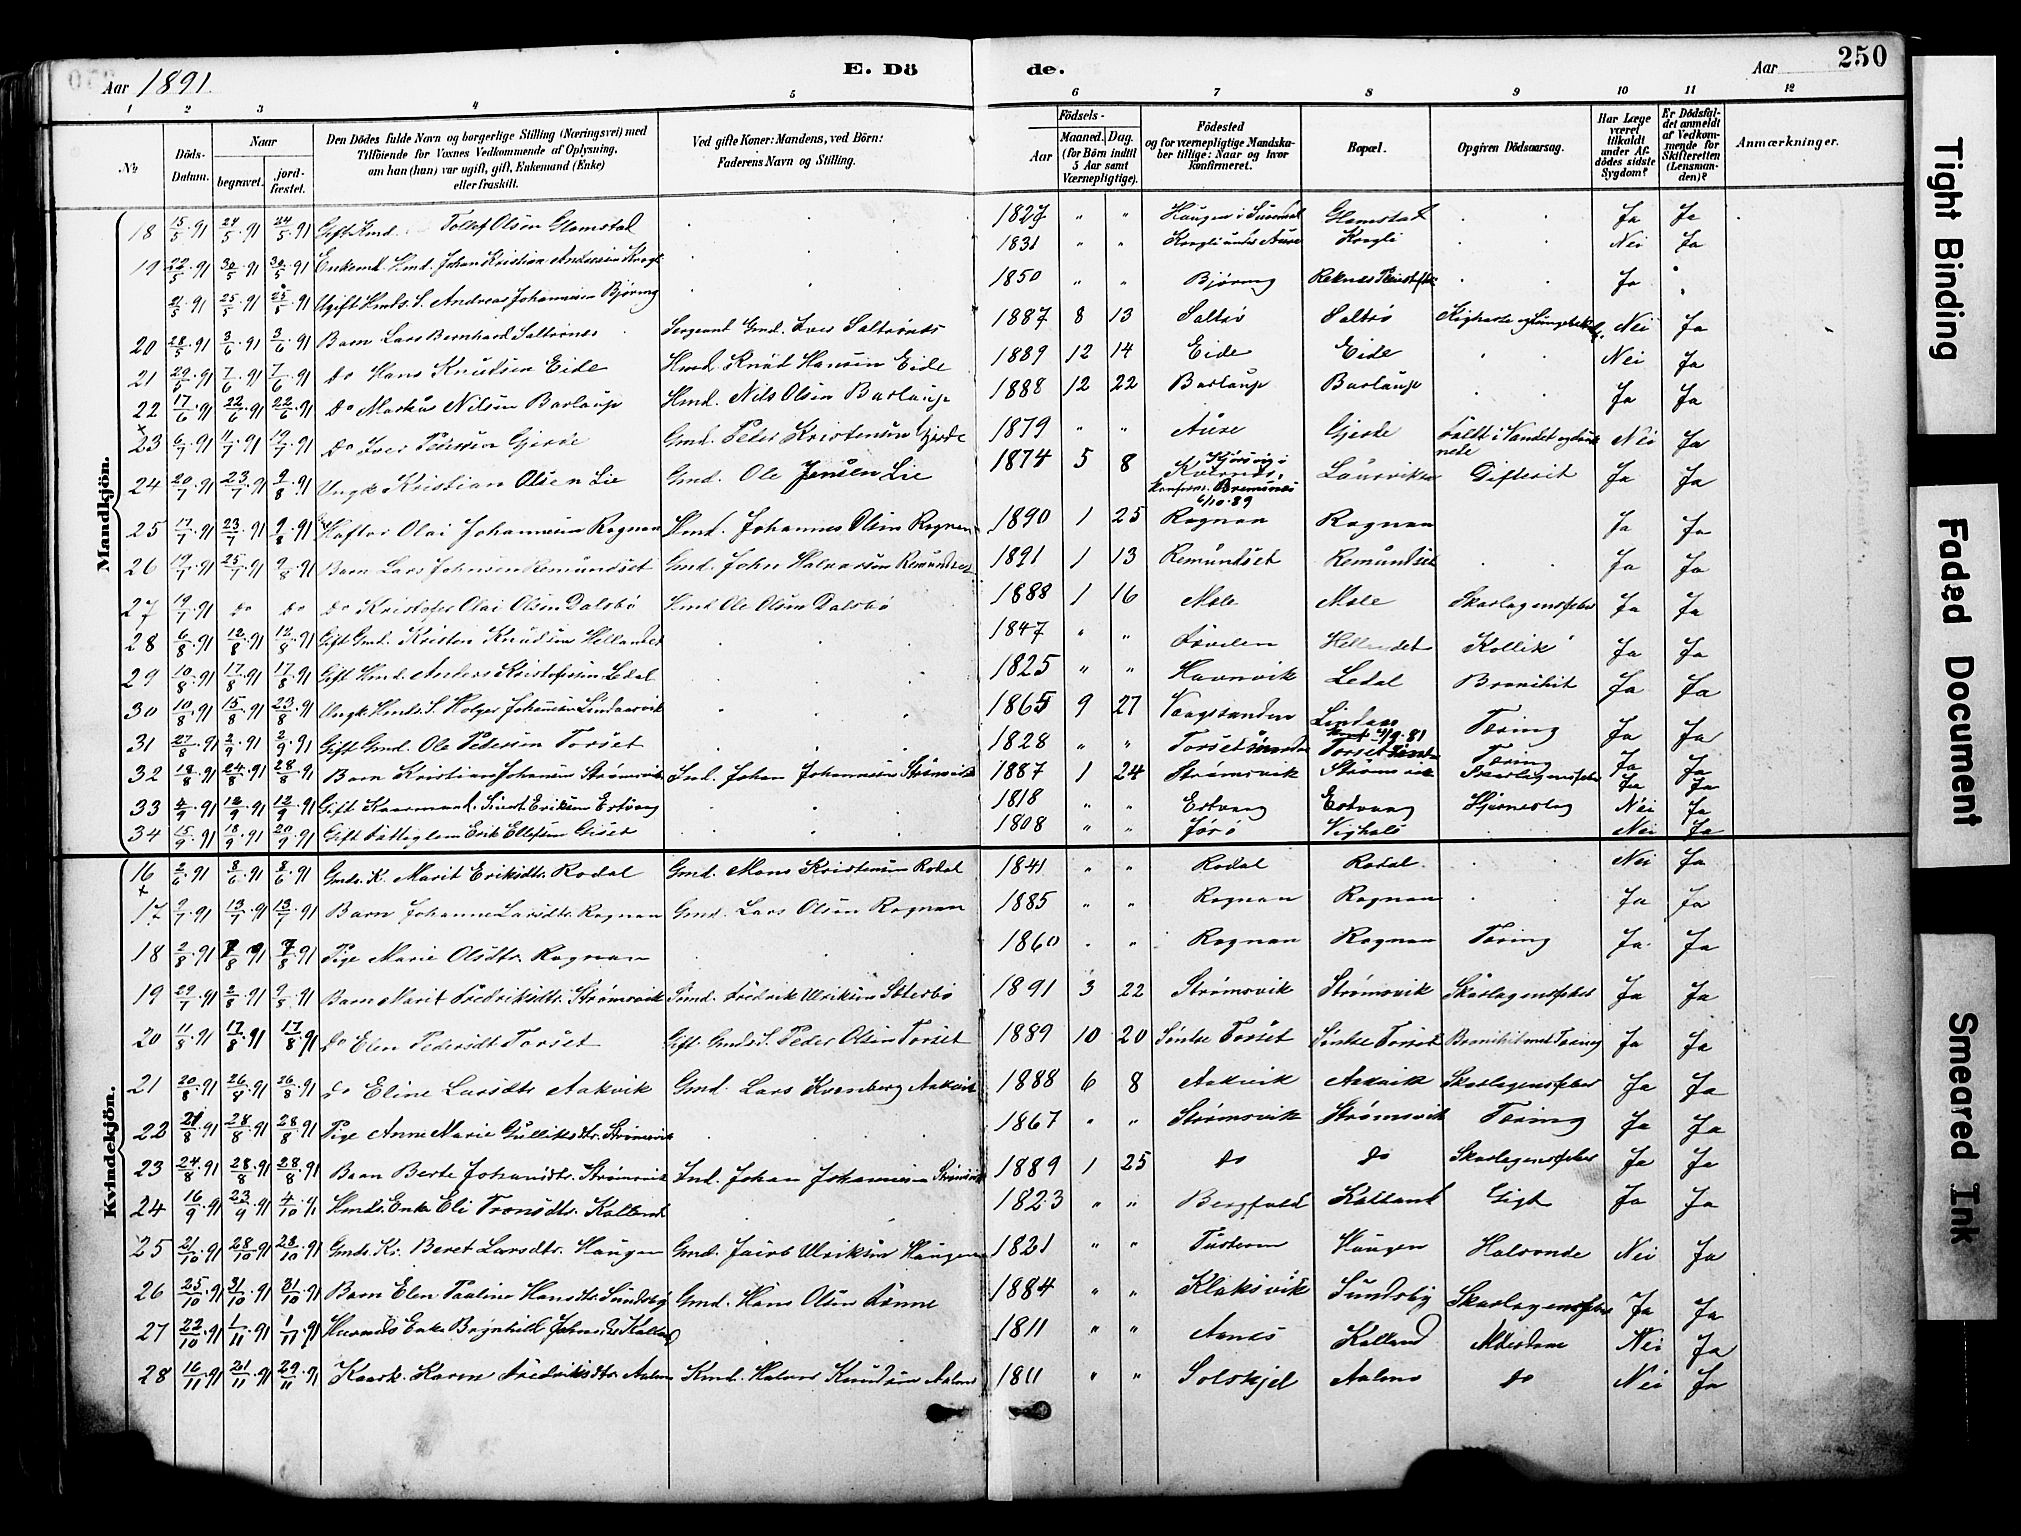 250
Aar 1891. E. Dö de. Aar
1 2 3 4 5 6 7 8 9 10 11 12
No
Döds-Datum.
Naar
begravet.
jord-fæstet.
Den Dödes fulde Navn og borgerlige Stilling (Næringsvei) med
Tilföiende for Voxnes Vedkommende af Oplysning,
om han (hun) var ugift, gift, Enkemand (Enke)
eller fraskilt.
Ved gifte Koner: Mandens, ved Börn:
Faderens Navn og Stilling.
Födsels-
Aar
Maaned. Dag.
(for Börn indtil
5 Aar samt
Værnepligtige).
Födested
og for værnepligtige Mandska-
ber tillige: Naar og hvor
konfirmeret.
Bopæl.
Opgiven Dödsaarsag.
Har Læge
været
tilkaldt
under Af-
dödes sidste
Sygdom?
Er Dödsfal-
det anmeldt
af Vedkom-
mende for
Skifteretten
(Lensman-
den)?
Anmærkninger.
Mandkjön.
18 15/5.91 24/5.91 24/5.91 Gift Hmd. Tollef Olsen Glamstad 1827 " " Haugen i Glamstad Ja Ja
19 22/5.91 30/5.91 30/5.91 Enkemd. Hmd. Johan Kristian Andersen 1831 " " Nei Ja
21/5.91 25/5.91 25/5.91 Ugift Hmds. S. Andreas Johannesen Bjøring 1850 " " Bjøring Ja "
20 28/5.91 3/6.91 3/6.91 Barn Lars Bernhard Saltrönes Sergeant Gmd. Iver Saltrönes 1887 8 13 Saltrö Saltrö Nei Ja
21 29/5.91 7/6.91 7/6.91 do Hans Knudsen Eide Hmd. Knud Hansen Eide 1889 12 14 Eide Eide Nei Ja
22 17/6.91 22/6.91 22/6.91 do Markus Nilsen Barlaup Hmd. Nils Olsen Barlaup 1888 12 22 Barlaup Barlaup Ja Ja
+
23 6/7.91 11/7.91 19/7.91 do Iver Pedersen Gjerde Gmd. Peder Kristensen Gjerde 1879 " " Aure Gjerde Faldt i Vandet og druk
nede Nei Ja
24 20/7.91 23/7.91 9/8.91 Ungk. Kristian Olsen Lie Gmd. Ole Jensen Lie 1874 5 8 Kvernes,
konfirm. Bremsnes
6/10.89 Laurviken Gifterit Ja Ja
25 17/7.91 23/7.91 9/8.91 Olai Johannesen Rognan Hmd. Johannes Olsen Rognan 1890 1 25 Rognan Rognan Ja Ja
26 19/7.91 25/7.91 9/8.91 Barn Lars Johnsen Remundset Gmd. John Halvorsen Remundset 1891 1 13 Remundset Remundset Ja Ja
27 19/7.91 do do do Kristofer Olai Olsen Dalsbö Hmd. Ole Olsen Dalsbö 1888 1 16 Mele Mele Skarlagensfeber Ja Ja
28 6/8.91 12/8.91 12/8.91 Gift Gmd. Kristen Knudsen Hellandet 1847 " " Hellandet Kollik Ja Ja
29 10/8.91 17/8.91 17/8.91 Gift Hmd. Anders Kristofersen Ledal 1825 " " Havnvik Ledal Bronkit Ja Ja
30 10/8.91 15/8.91 23/8.91 Ungk. Hmds. S. Holger Johansen Lindaasvik 1865 9 27 Vaagstranden Lindaas
konf. 4/9.81 Tæring Ja Ja
31 27/8.91 2/9.91 2/9.91 Gift Gmd. Ole Pedersen Torset 1828 " " Torset Torset Tæring Ja Ja
32 18/8.91 24/8.91 28/8.91 Barn Kristian Johansen Strömsvik Ind. Johan Johannesen Strömsvik 1887 1 24 Strömsvik Strömsvik Skarlagensfeber Ja Ja
33 4/9.91 12/9.91 12/9.91 Gift Kaarmand. Eriksen Ertvaag 1818 " " Ertvaag Ertvaag Hjerneslag Nei Ja
34 15/9.91 18/9.91 20/9.91 Gift Fattiglem Erik Ellefsen Giset 1808 " " Nei Ja
Kvindekjön.
16 2/6.91 8/6.91 8/6.91 Gmds. K. Marit Eriksdtr. Rodal Gmd. Mons Kristensen Rodal 1841 " " Rodal Rodal Nei Ja
+
17 9/7.91 13/7.91 13/7.91 Barn Johanne Larsdtr. Rognan Gmd. Lars Olsen Rognan 1885 " " Rognan Rognan Ja Ja
18 2/8.91 7/8.91 7/8.91 Pige Marie Olsdtr. Rognan 1860 " " Rognan Rognan Tæring Ja Ja
19 29/7.91 2/8.91 9/8.91 Barn Marit Fredriksdtr. Strömsvik Fredrik Ulriksen Sæterbö 1891 3 22 Strömsvik Strömsvik Skarlagensfeber Ja Ja
20 11/8.91 17/8.91 17/8.91 do Elen Pedersdt. Torset Gift Gmds. S. Peder Olsen Torset 1889 10 20 Torset Torset Bronkit med Tæring Ja Ja
21 20/8.91 26/8.91 26/8.91 do Eline Larsdtr. Aakvik Gmd. Lars Kvenberg Aakvik 1888 6 8 Aakvik Aakvik Skarlagensfeber Ja Ja
22 21/8.91 28/8.91 28/8.91 Pige Anne Marie Gulliksdtr. Strömsvik 1867 " " Strömsvik Strömsvik Tæring Ja Ja
23 24/8.91 28/8.91 28/8.91 Barn Berte Johansdtr. Strömsvik Ind. Johan Johannesen Strömsvik 1889 1 25 do do Skarlagensfeber Ja Ja
24 16/9.91 23/9.91 4/10.91 Hmds. Enke Eli Tronsdtr. Kalland 1823 " " Bergfald Kalland Gigt Ja Ja
25 21/10.91 28/10.91 28/10.91 Gmds. K. Beret Larsdtr. Haugen Gmd. Jacob Ulriksen Haugen 1821 " " Tusteren Haugen Halsonde Nei Ja
26 25/10.91 31/10.91 31/10.91 Barn Elen Pauline Hansdtr. Sundsby Gmd. Hans Olsen 1884 " " Klaksvik Sundsby Skarlagensfeber Ja Ja
27 22/10.91 1/11.91 1/11.91 Enke Brynhild Johnsdtr. Kalland 1811 " " Aanes Kalland Alderdom Nei Ja
28 16/11.91 21/11.91 29/11.91 Kaark. Karen Fredriksdtr. Aalmo Kmd. Halvor Knudsen Aalmo 1811 " " Solskjel Aalmo do Nei Ja
Tight Binding
Faded Document
Smeared Ink